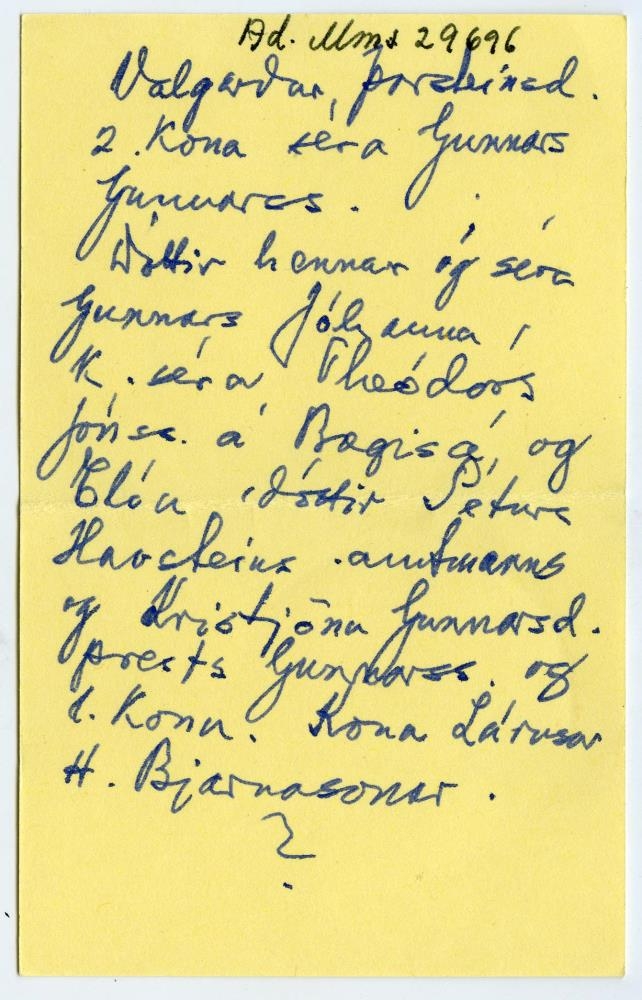 Ad. Mms 29696
Valgerdur, þorsteinsd.
2. Kona séra Gunnars
Gunnarss.
Dóttir hennar og séra
Gunnars Jóhanna,
K. séra Theódórs
Jónss. á Bægisá, og
Elín dóttir Péturs
Havsteins amtmanns
og Kristjönu Gunnarsd.
prests Gunnarss. og
1. Konu. Kona Lárusar
H. Bjarnasonar.